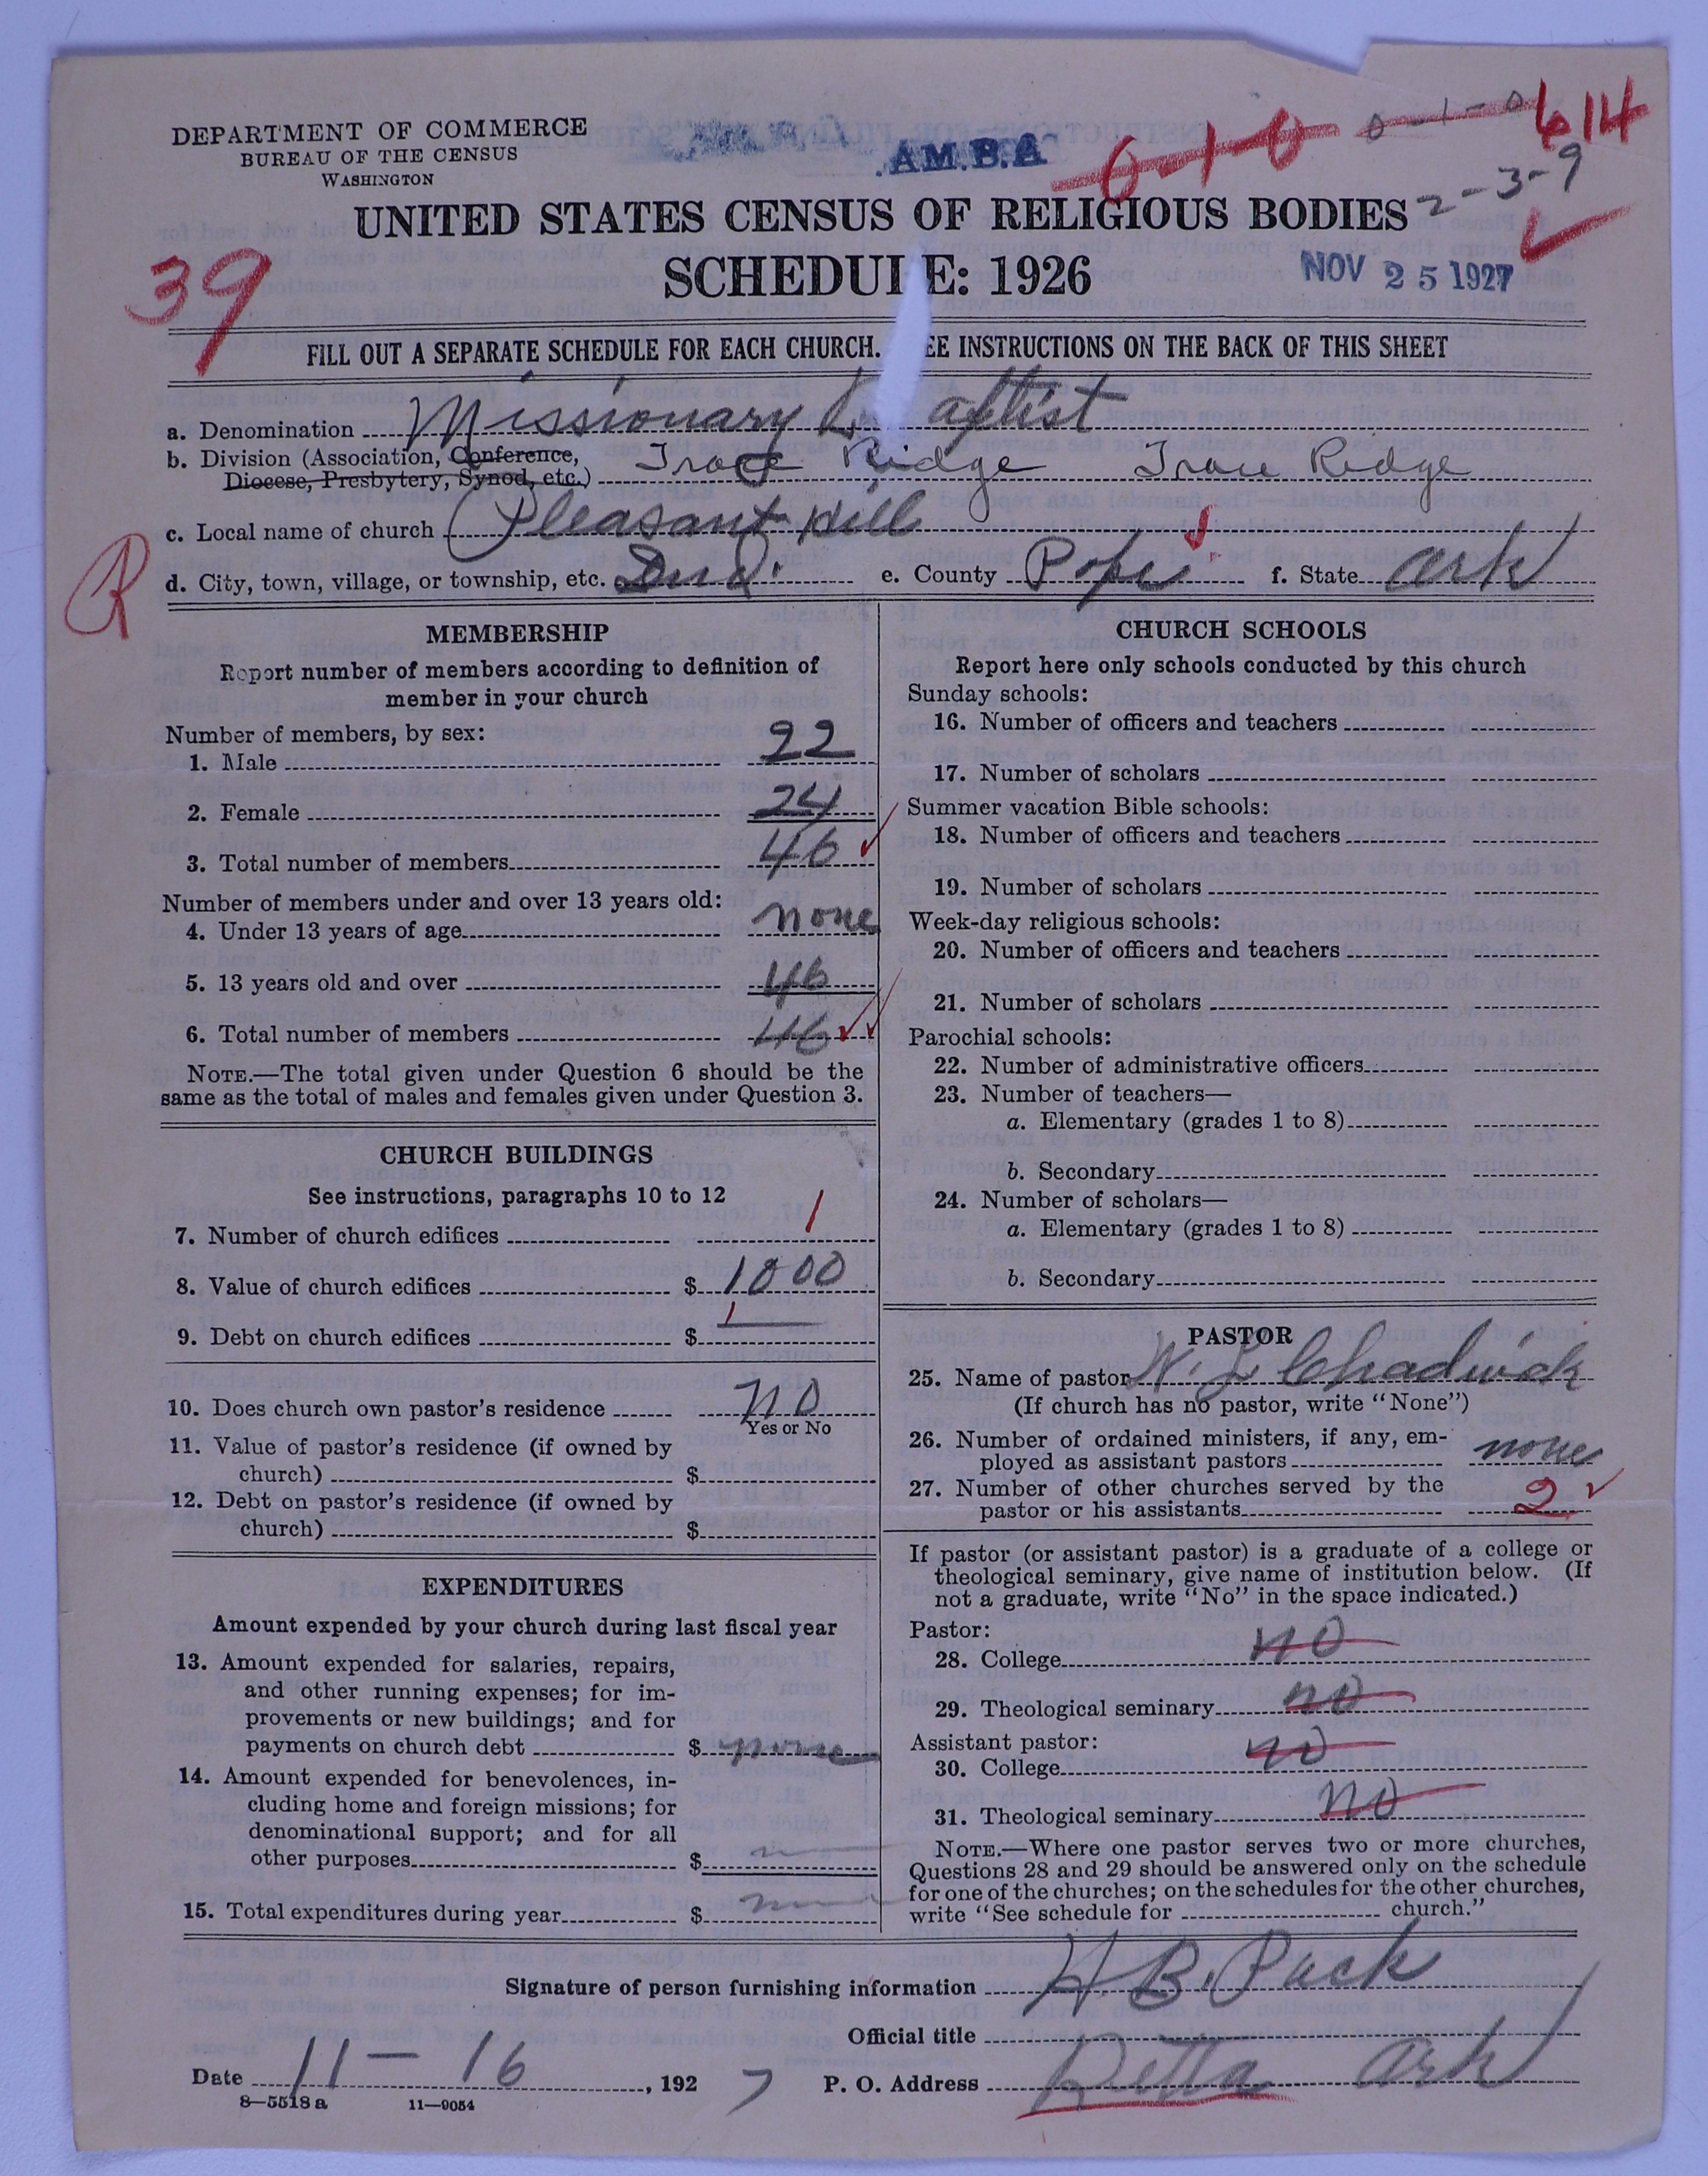 DEPARTMENT OF COMMERCE
BUREAU OF THE CENSUS
WASHINGTON
AM.B.A
0-1-0 0-1-0 614
2-3-9
UNITED STATES CENSUS OF RELIGIOUS BODIES
SCHEDULE: 1926
NOV 25 1927
39
FILL OUT A SEPARATE SCHEDULE FOR EACH CHURCH. SEE INSTRUCTIONS ON THE BACK OF THIS SHEET
a. Denomination Missionary Baptist
b. Division (Association, Conference, Diocese, Presbytery, Synod, etc.) Trace Ridge Trace Ridge
c. Local name of church Pleasant Hill
R
d. City, town, village, or township, etc. e. County Pope f. State Ark
MEMBERSHIP
Report number of members according to definition of
member in your church
Number of members, by sex:
1. Male 22
2. Female 24
3. Total number of members 46
Number of members under and over 13 years old:
4. Under 13 years of age none
5. 13 years old and over 46
6. Total number of members 46
NOTE.—The total given under Question 6 should be the
same as the total of males and females given under Question 3.
CHURCH BUILDINGS
See instructions, paragraphs 10 to 12
7. Number of church edifices 1
8. Value of church edifices $ 1000
9. Debt on church edifices $
10. Does church own pastor's residence no
Yes or No
11. Value of pastor's residence (if owned by
church) $
12. Debt on pastor's residence (if owned by
church) $
EXPENDITURES
Amount expended by your church during last fiscal year
13. Amount expended for salaries, repairs,
and other running expenses; for im-
provements or new buildings; and for
payments on church debt $ none
14. Amount expended for benevolences, in-
cluding home and foreign missions; for
denominational support; and for all
other purposes $
15. Total expenditures during year $
CHURCH SCHOOLS
Report here only schools conducted by this church
Sunday schools:
16. Number of officers and teachers
17. Number of scholars
Summer vacation Bible schools:
18. Number of officers and teachers
19. Number of scholars
Week-day religious schools:
20. Number of officers and teachers
21. Number of scholars
Parochial schools:
22. Number of administrative officers
23. Number of teachers—
a. Elementary (grades 1 to 8)
b. Secondary
24. Number of scholars—
a. Elementary (grades 1 to 8)
b. Secondary
PASTOR
25. Name of pastor W. L Chadwick
(If church has no pastor, write "None")
26. Number of ordained ministers, if any, em-
ployed as assistant pastors none
27. Number of other churches served by the
pastor or his assistants 2
If pastor (or assistant pastor) is a graduate of a college or
theological seminary, give name of institution below. (If
not a graduate, write "No" in the space indicated.)
Pastor:
28. College no
29. Theological seminary no
Assistant pastor:
30. College no
31. Theological seminary no
NOTE.—Where one pastor serves two or more churches,
Questions 28 and 29 should be answered only on the schedule
for one of the churches; on the schedules for the other churches,
write "See schedule for church."
Signature of person furnishing information H. B. Pack
Official title
Date 11 — 16, 1927 P. O. Address Ark
8—5518 a 11—9054